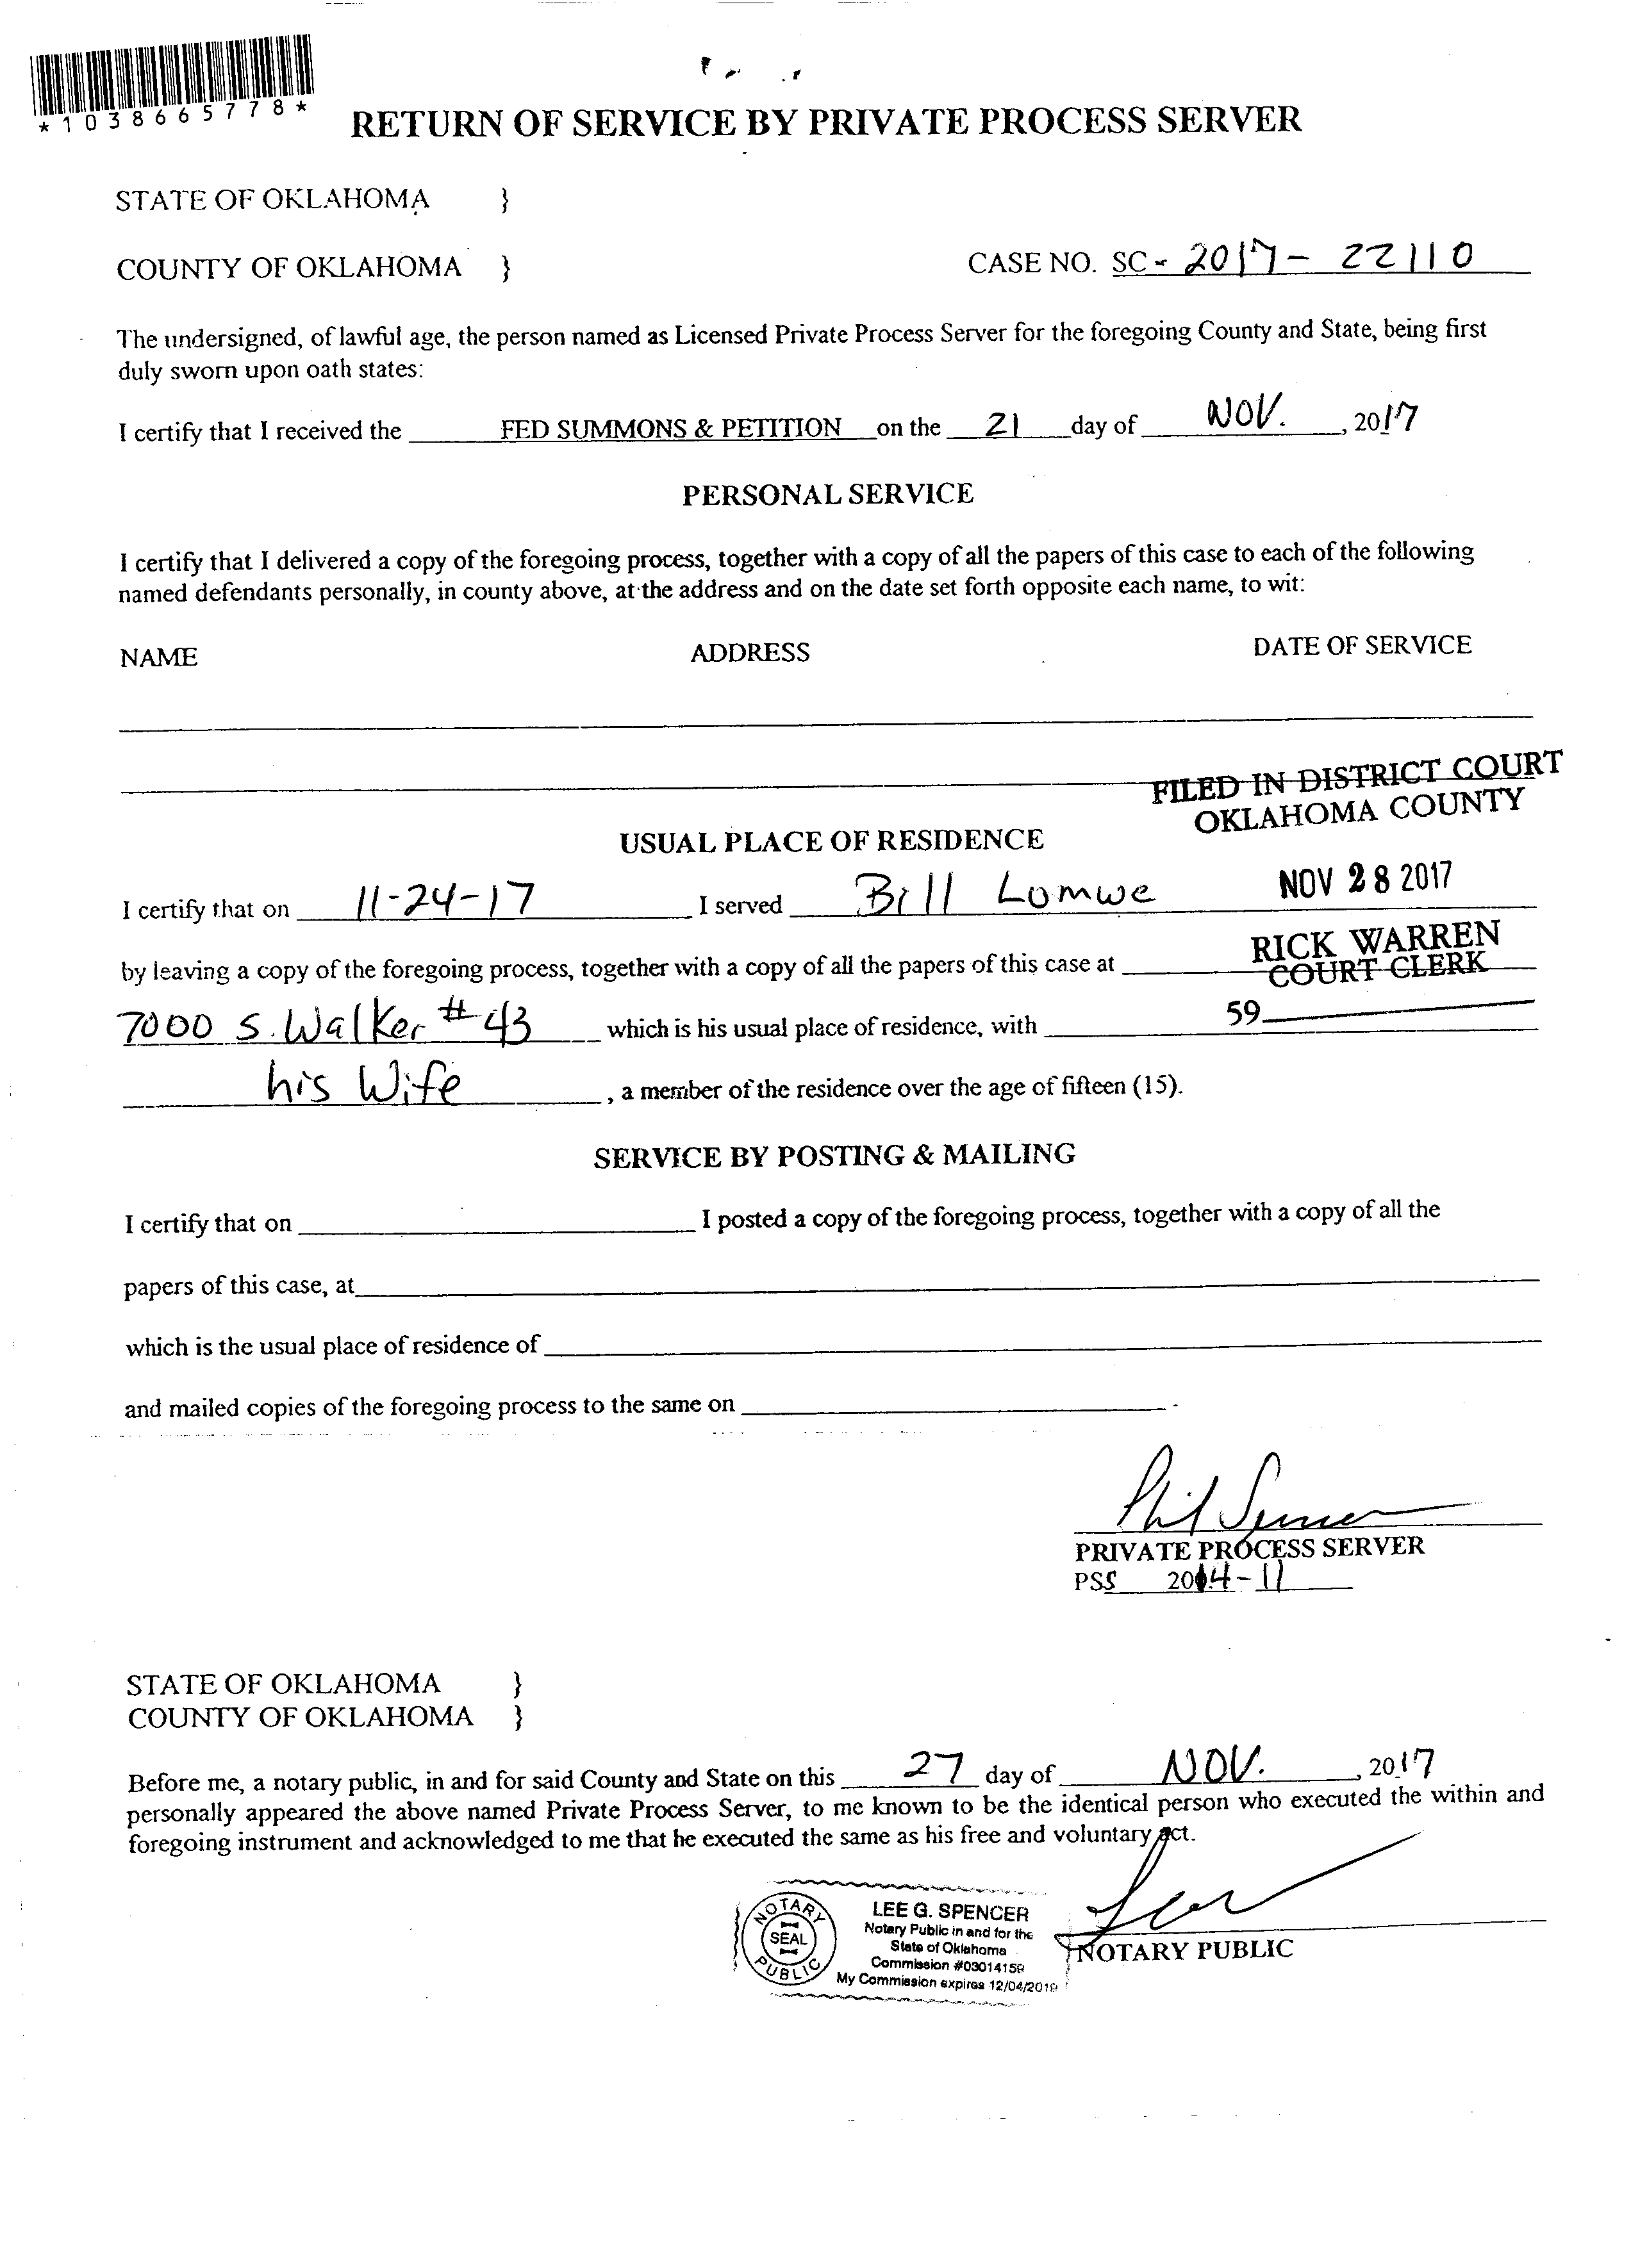 *1038665778*
RETURN OF SERVICE BY PRIVATE PROCESS SERVER
STATE OF OKLAHOMA }
COUNTY OF OKLAHOMA } CASE NO. SC - 2017 - 22110
The undersigned, of lawful age, the person named as Licensed Private Process Server for the foregoing County and State, being first
duly sworn upon oath states:
I certify that I received the FED SUMMONS & PETITION on the 21 day of NOV. , 2017
PERSONAL SERVICE
I certify that I delivered a copy of the foregoing process, together with a copy of all the papers of this case to each of the following
named defendants personally, in county above, at the address and on the date set forth opposite each name, to wit:
NAME ADDRESS DATE OF SERVICE
FILED IN DISTRICT COURT
OKLAHOMA COUNTY
USUAL PLACE OF RESIDENCE
I certify that on 11-24-17 I served Bill Lomwe NOV 28 2017
RICK WARREN
by leaving a copy of the foregoing process, together with a copy of all the papers of this case at COURT CLERK
7000 S. Walker #43 which is his usual place of residence, with 59
his Wife , a member of the residence over the age of fifteen (15).
SERVICE BY POSTING & MAILING
I certify that on I posted a copy of the foregoing process, together with a copy of all the
papers of this case, at
which is the usual place of residence of
and mailed copies of the foregoing process to the same on .
PRIVATE PROCESS SERVER
PSS 2014-11
STATE OF OKLAHOMA }
COUNTY OF OKLAHOMA }
Before me, a notary public, in and for said County and State on this 27 day of NOV. , 2017
personally appeared the above named Private Process Server, to me known to be the identical person who executed the within and
foregoing instrument and acknowledged to me that he executed the same as his free and voluntary act.
NOTARY PUBLIC SEAL
LEE G. SPENCER
Notary Public in and for the
State of Oklahoma
Commission #03014159
My Commission expires 12/04/2019
NOTARY PUBLIC